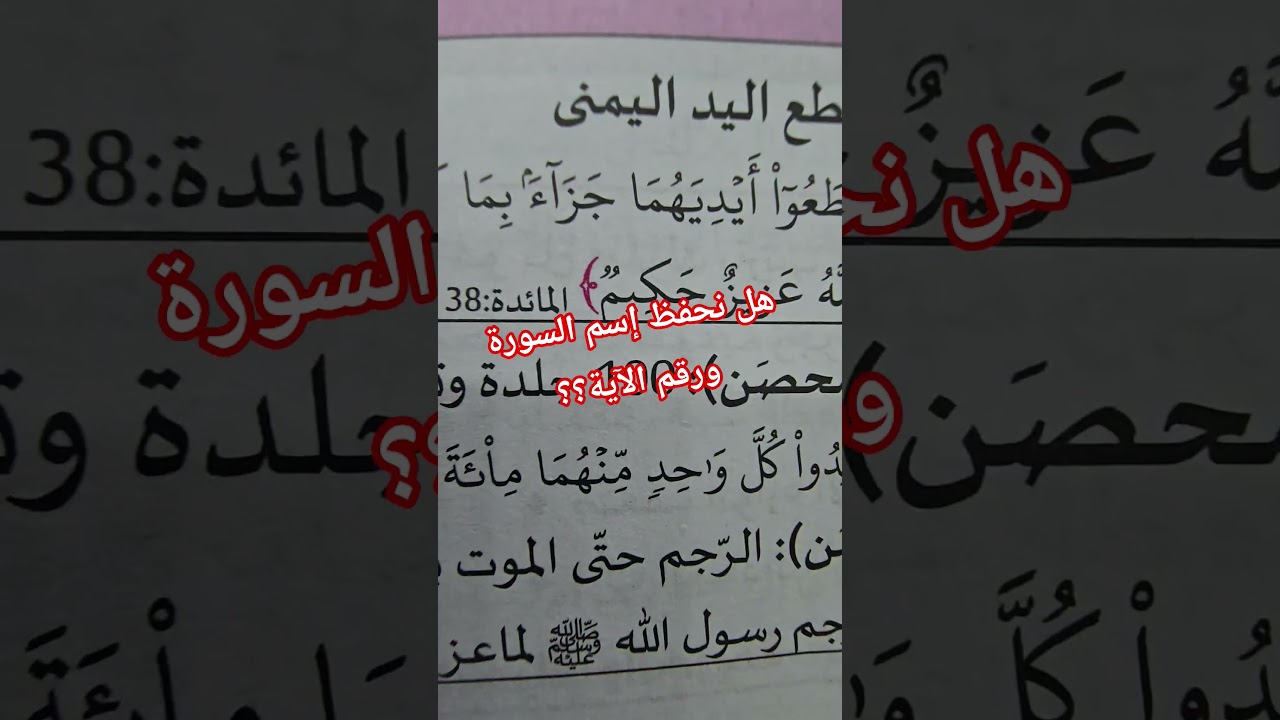 طع اليد اليمنى
طَعُوٓا۟ أَيْدِيَهُمَا جَزَآءَۢ بِمَا
ـَّهُ عَزِيزٌ حَكِيمٌ﴾ المائدة:38
هل نحفظ إسم السورة
ورقم الآية؟؟
محصَن): 100 جلدة وتـ
ـدُوا۟ كُلَّ وَٰحِدٍ مِّنْهُمَا مِا۟ئَةَ
ـن): الرّجم حتّى الموت بـ
جم رسول الله ﷺ لماعز